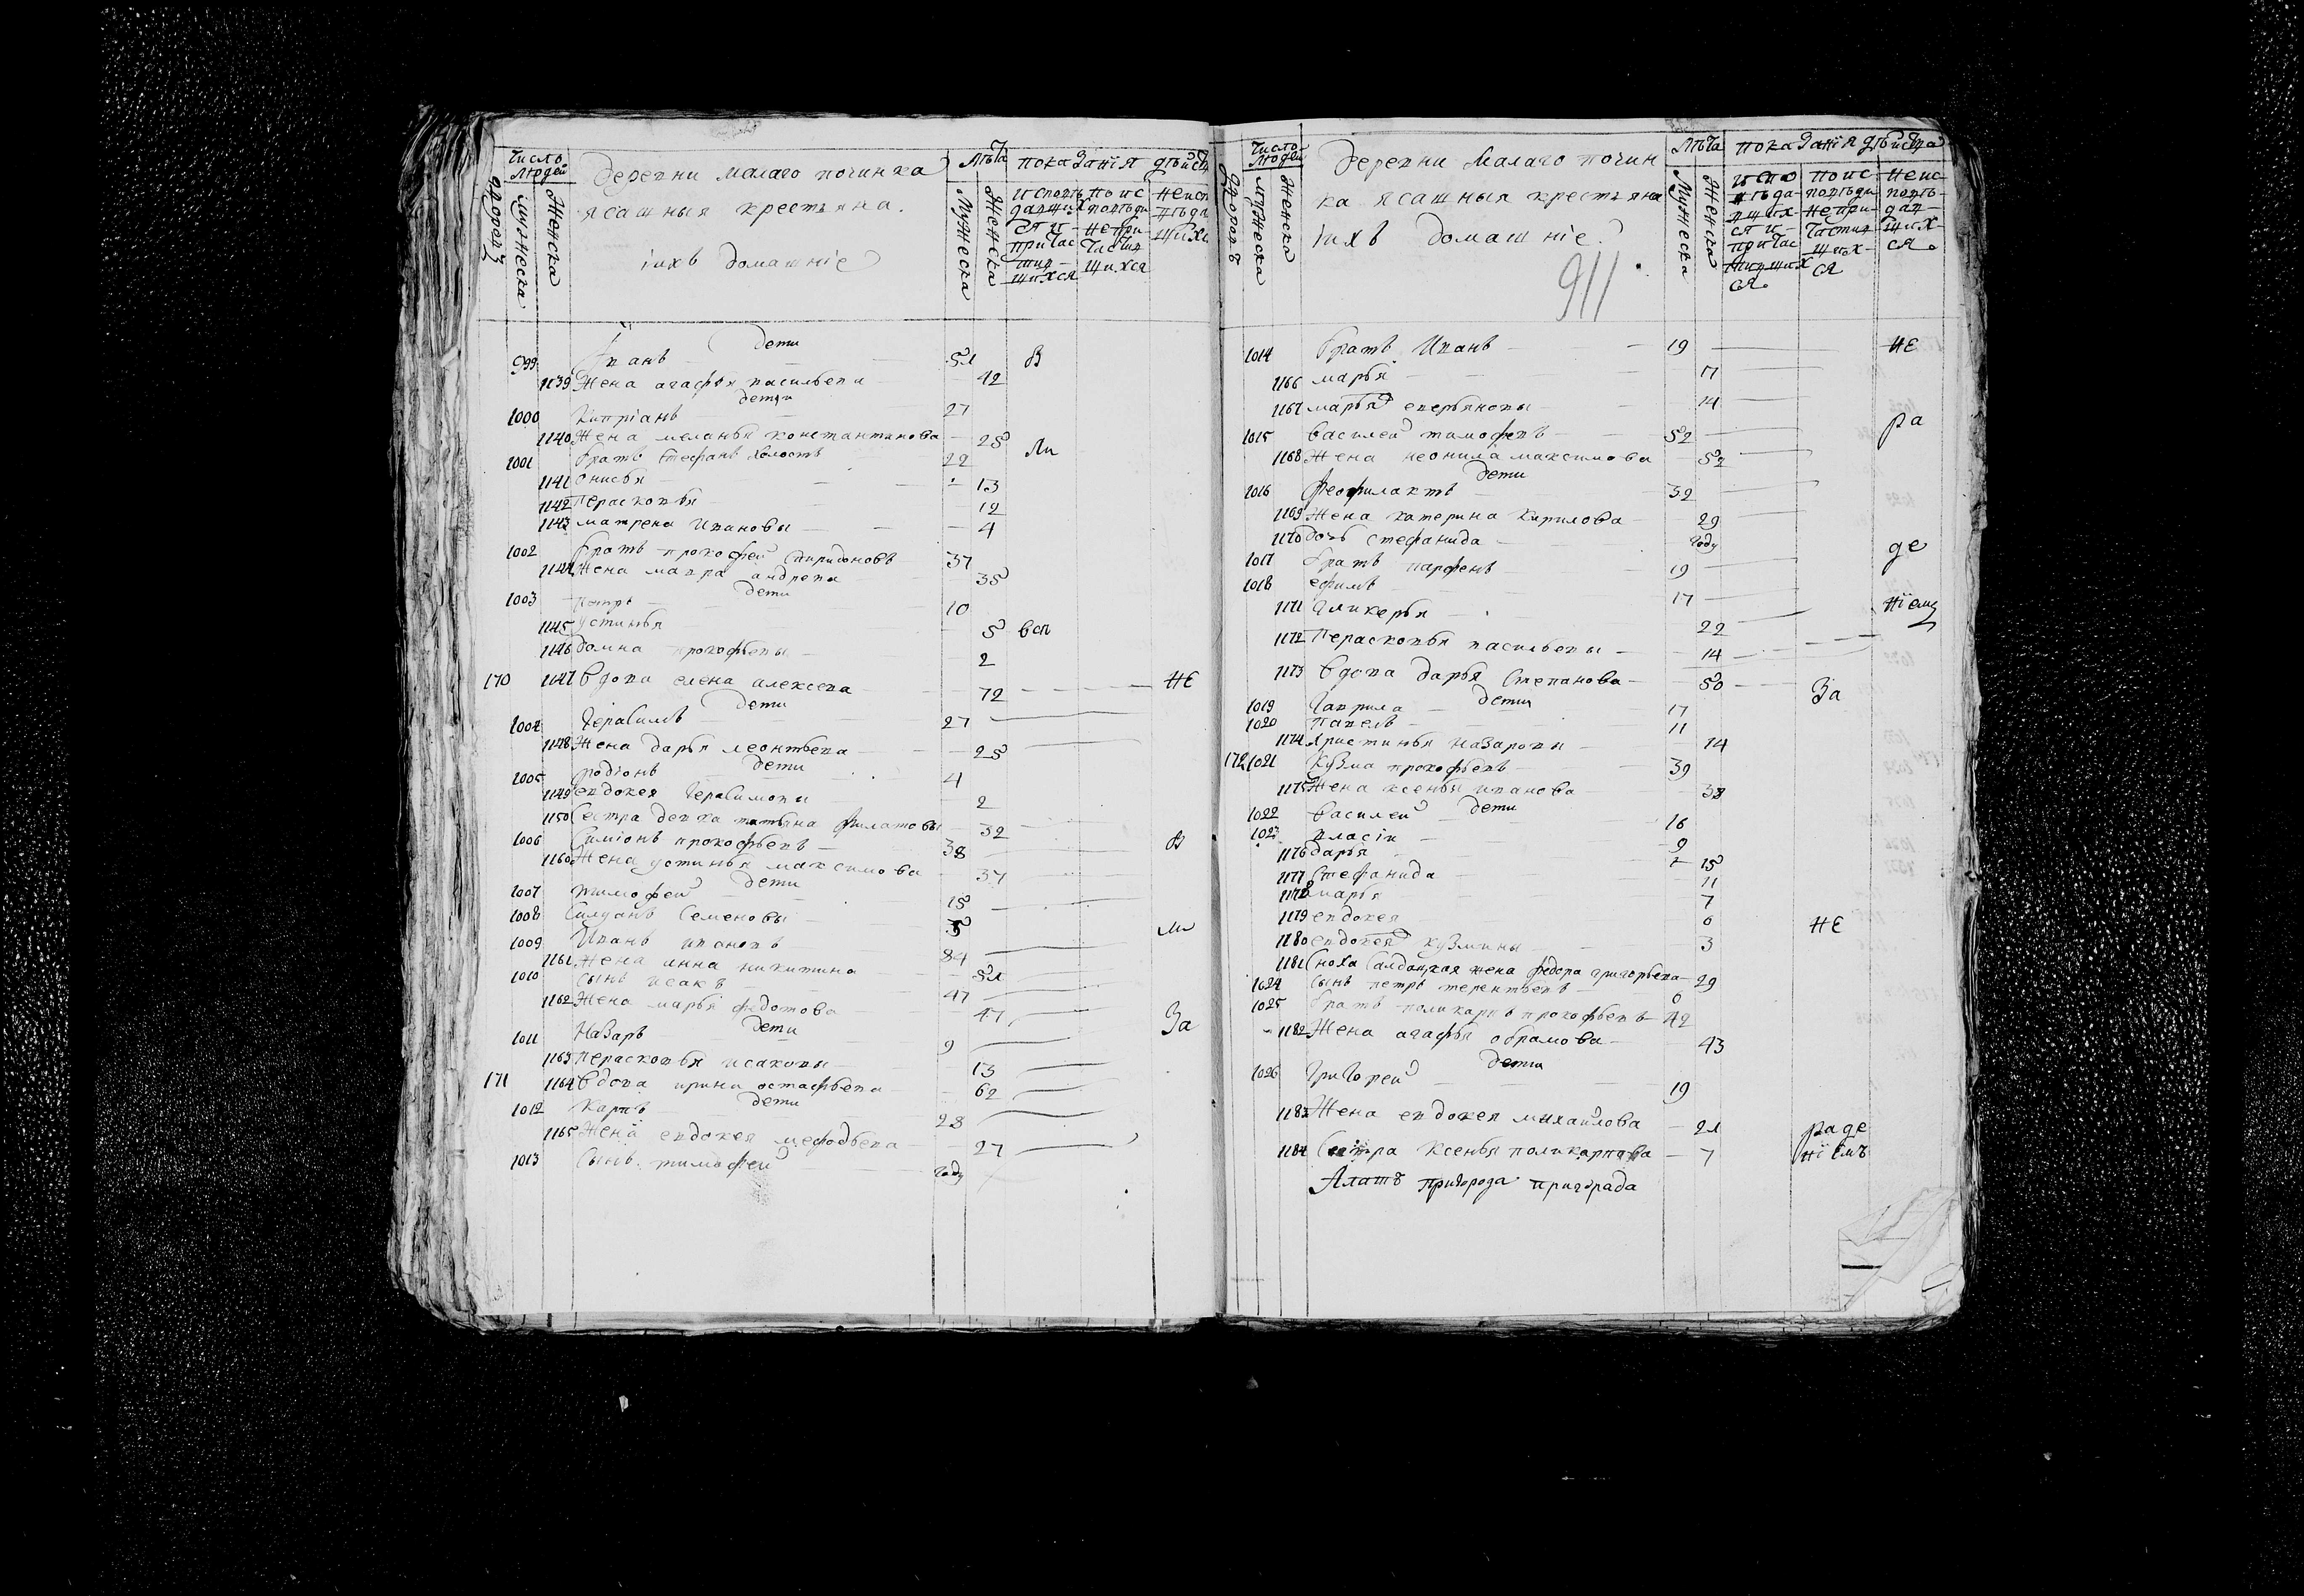 Число людей
дворовъ
мужеска
женска
деревни малаго починка
ясашныя крестьяна.
iихъ домашнiе
Лѣта
Мужеска
Женска
показанiя дѣйст
исповѣдавшихся и причастившихся
по исповѣди непричастившихся
неисповѣдавшихся
дети
999 Иванъ 51 В
1139 Жена агафья васильева 42
дети
1000 Кипрiанъ 27
1140 Жена меланья константинова 25 Ли
1001 братъ Стефанъ холостъ 22
1141 онисья 13
1142 Перасковья 12
1143 матрена Ивановы 4
1002 братъ прокофей спиридоновъ 37
1144 Жена мавра андрева 35
дети
1003 Петръ 10
1145 устинья 5 всп
1146 домна прокофьевы 2
170 1147 Вдова елена алексева 72 НЕ
дети
1004 Герасимъ 27
1148 Жена дарья леонтьева 25
дети
1005 родiонъ 4
1149 евдокея Герасимовы 2
1150 Сестра девка татьяна филатовы 32
1006 Симiонъ прокофьевъ 38 В
1160 Жена устинья максимова 37
дети
1007 тимофей 15
1008 Силуанъ Семеновы 5 ли
1009 Иванъ ивановъ 84
1161 Жена анна никитина 51
1010 Сынъ исакъ 47
1162 Жена марья федотова 47 За
дети
1011 Назаръ 9
1163 Перасковья исаковы 13
171 1164 Вдова ирина остафьева 62
дети
1012 Карпъ 28
1165 Жена евдокея мефодьева 27
1013 Сынъ тимофей году
Число людей
дворовъ
мужеска
женска
деревни Малаго почин
ка ясашныя крестьяна
iихъ домашнiе
911
Лѣта
Мужеска
Женска
показанiя дѣйства
исповѣдавшихся и причастившихся
по исповѣди непричастившихся
неисповѣдавшихся
1014 братъ Иванъ 19 НЕ
1166 марья 17
1167 марья 14
1015 Василей тимофевъ 52 ра
1168 Жена неонила максимова 52
дети
1016 Феофилактъ 32
1169 Жена катерина Кирилова 29
1170 дочь стефанида году де
1017 братъ парфенъ 19
1018 ефимъ 17
1171 Гликерья 22 нiемъ
1172 Перасковья васильевы 14
1173 Вдова дарья Степанова 50 За
дети
1019 Гаврила 17
1020 Павелъ 11
1174 Христинья назаровы 14
172 1021 Кузма прокофьевъ 39
1175 Жена ксенья иванова 38
дети
1022 Василей 16
1023 власiи 9
1176 дарья 15
1177 Стефанида 11
1178 марья 7
1179 евдокея 6 НЕ
1180 евдокея кузмины 3
1181 Сноха Салдацкая жена федора григорьева 29
1024 Сынъ петръ терентьевъ 0
1025 братъ поликарпъ прокофьевъ 42
1182 Жена агафья обрамова 43
дети
1026 Григорей 19
1183 Жена евдокея михайлова 21 раде
1184 Сестра Ксенья поликарпова 7 нiемъ
Алатъ пригорода пригорада